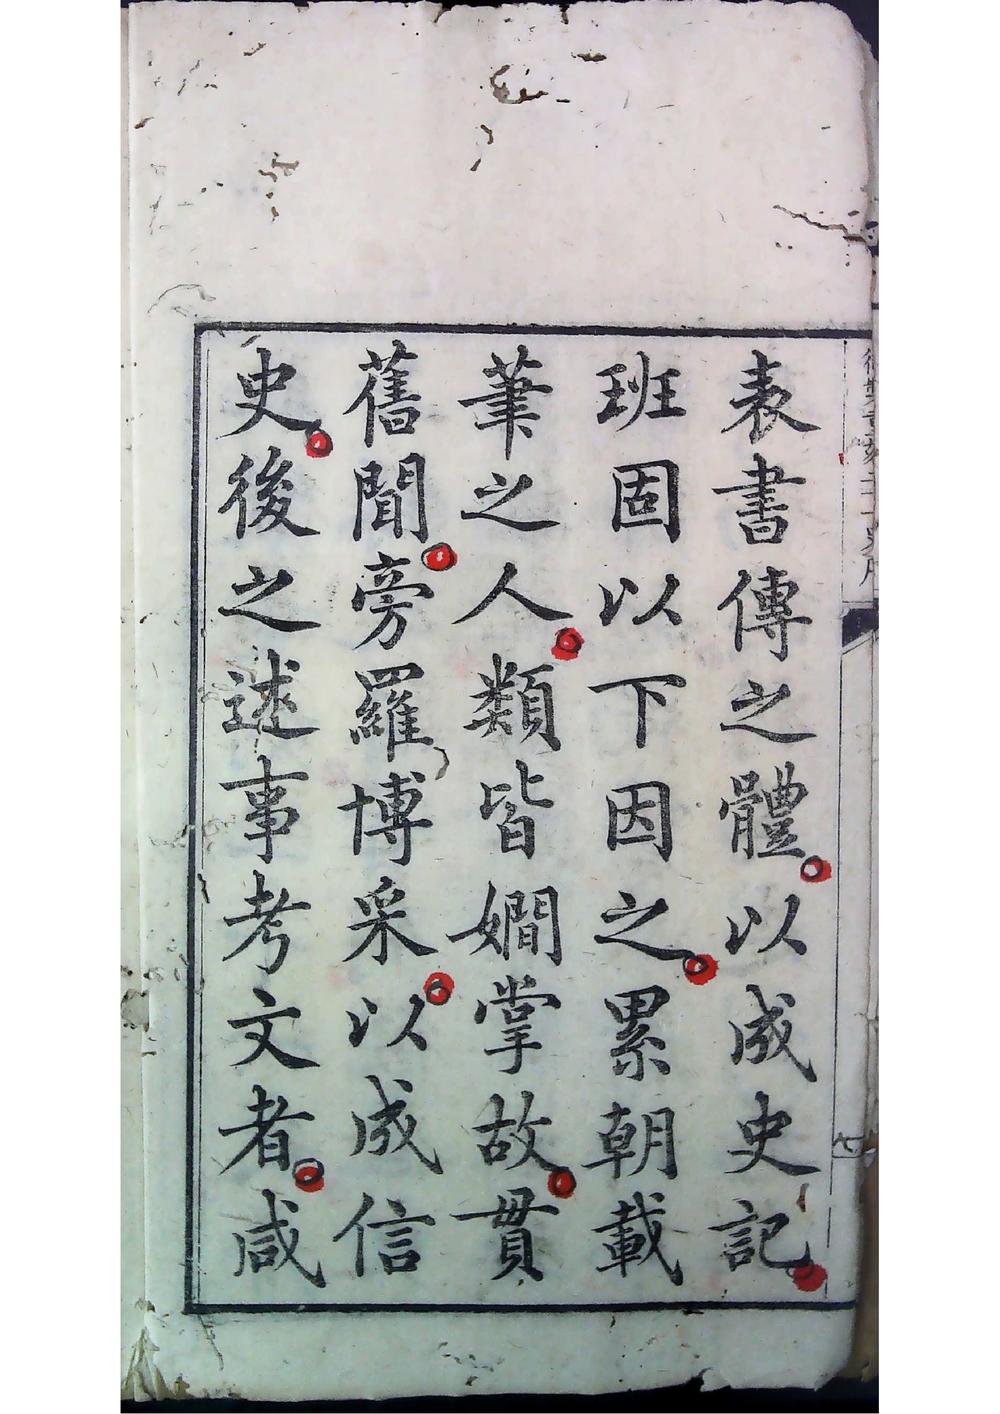 表書傳之體以成史記
班固以下因之累朝載
筆之人類皆嫺掌故貫
舊聞旁羅博采以成信
史後之述事考文者咸